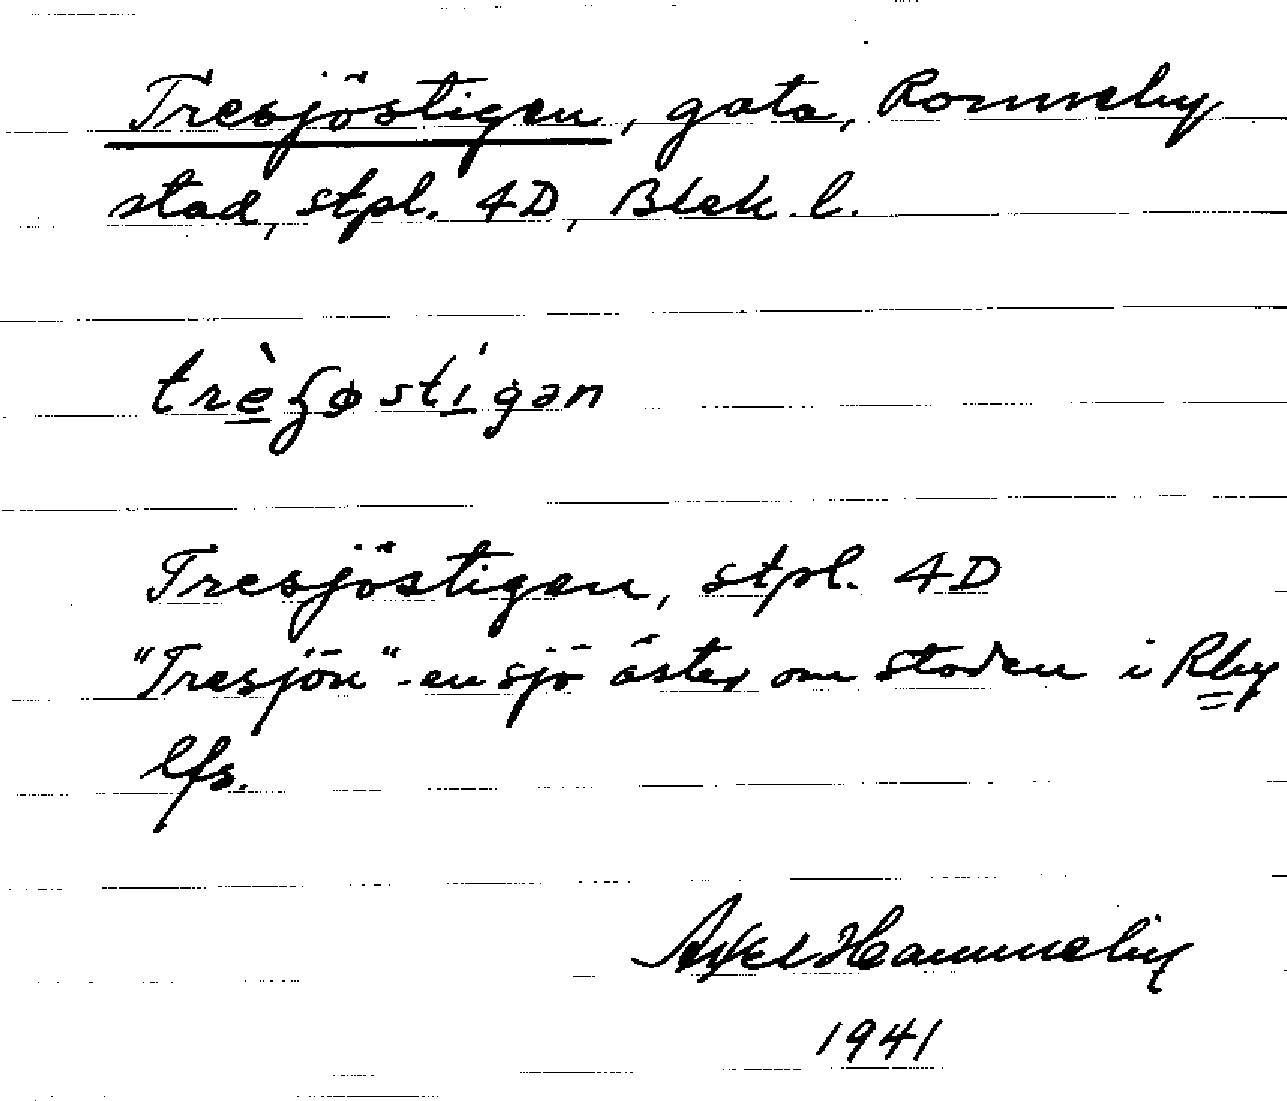 Tresjöstigen, gata, Ronneby
stad, stpl. 4D, Blek. l.
trèʒøstígən
Tresjöstigen, stpl. 4D
"Tresjön" - en sjö öster om staden i Rby
lfs.
Axel Hammeby
1941